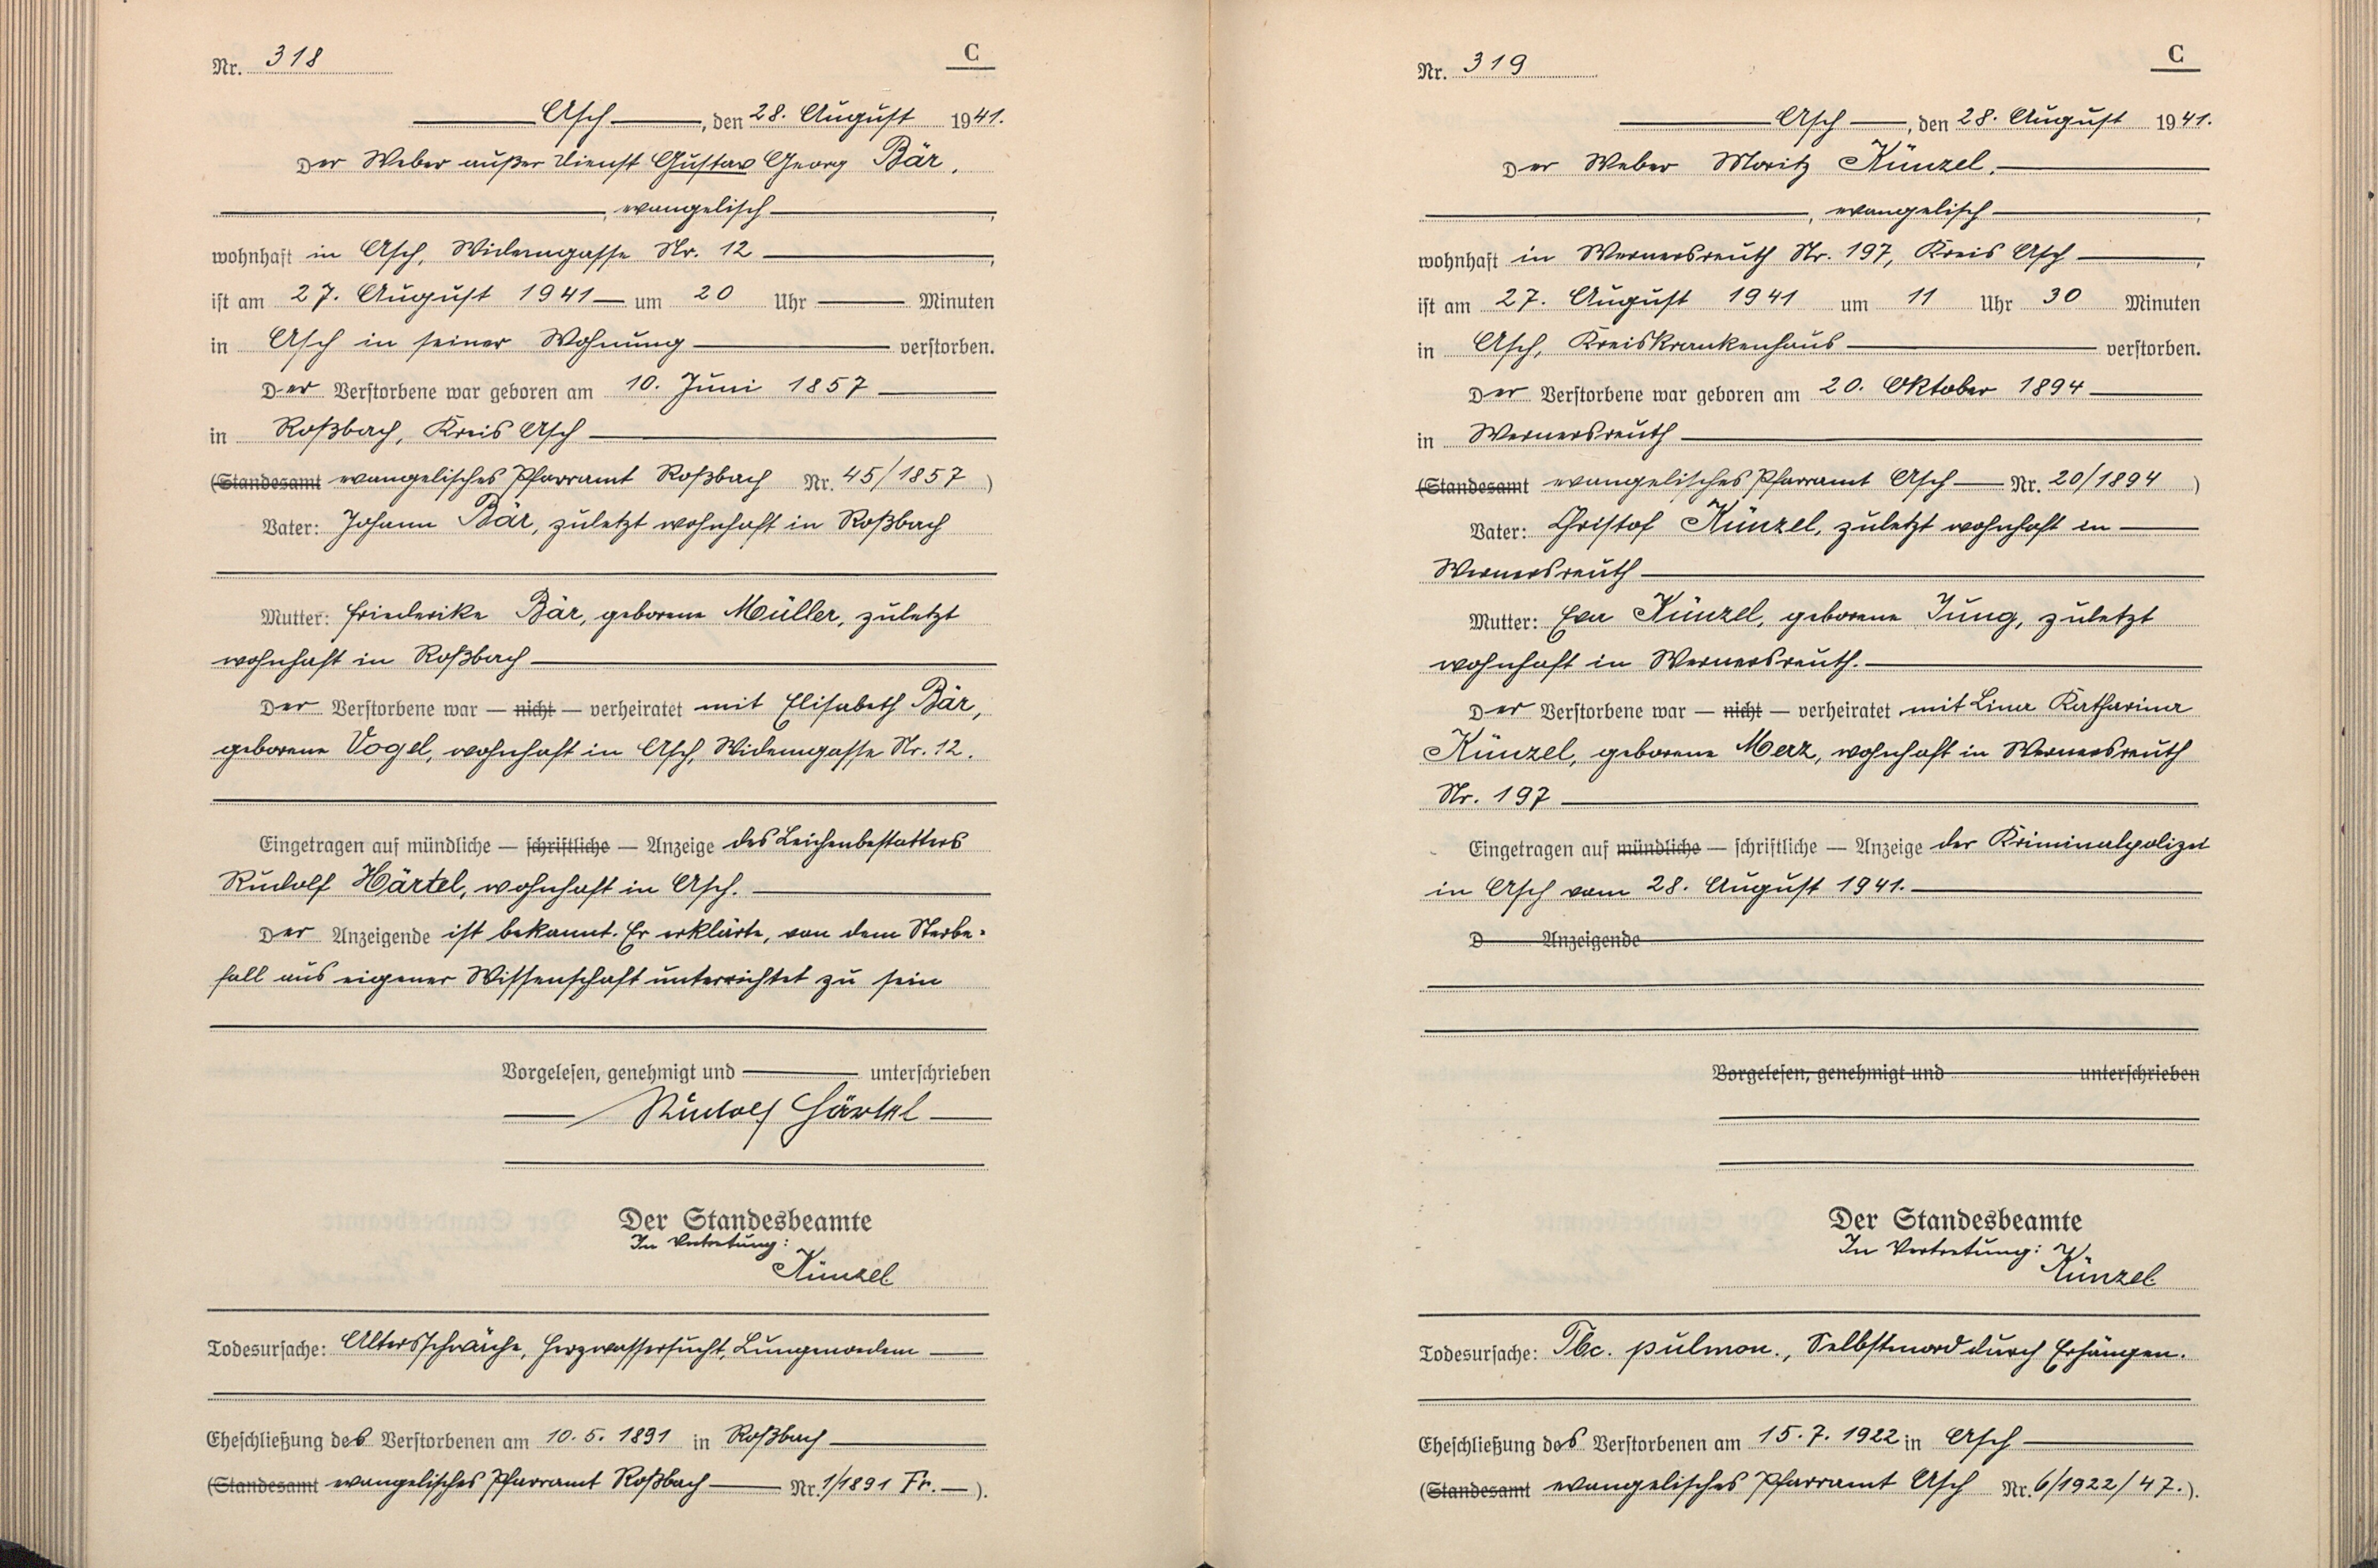 Nr. 318
C
Asch, den 28. August 1941.
Der Weber außer Dienst Gustav Georg Bär,
, evangelisch,
wohnhaft in Asch, Widemgasse Nr. 12,
ist am 27. August 1941 um 20 Uhr Minuten
in Asch in seiner Wohnung verstorben.
Der Verstorbene war geboren am 10. Juni 1857
in Roßbach, Kreis Asch
(Standesamt evangelisches Pfarramt Roßbach Nr. 45/1857)
Vater: Johann Bär, zuletzt wohnhaft in Roßbach
Mutter: Friederike Bär, geborene Müller, zuletzt
wohnhaft in Roßbach
Der Verstorbene war — nicht — verheiratet mit Elisabeth Bär,
geborene Vogel, wohnhaft in Asch, Widemgasse Nr. 12.
Eingetragen auf mündliche — schriftliche — Anzeige des Leichenbestatters
Rudolf Härtel, wohnhaft in Asch.
Der Anzeigende ist bekannt. Er erklärte, von dem Sterbe-
fall aus eigener Wissenschaft unterrichtet zu sein
Vorgelesen, genehmigt und unterschrieben
Rudolf Härtel
Der Standesbeamte
In Vertretung:
Künzel
Todesursache: Altersschwäche, Herzwassersucht, Lungenoedem
Eheschließung des Verstorbenen am 10. 5. 1891 in Roßbach
(Standesamt evangelisches Pfarramt Roßbach Nr. 1/1891 Fr. ).
Nr. 319
C
Asch, den 28. August 1941.
Der Weber Moritz Künzel,
, evangelisch,
wohnhaft in Wernersreuth Nr. 197, Kreis Asch,
ist am 27. August 1941 um 11 Uhr 30 Minuten
in Asch, Kreiskrankenhaus verstorben.
Der Verstorbene war geboren am 20. Oktober 1894
in Wernersreuth
(Standesamt evangelisches Pfarramt Asch Nr. 20/1894)
Vater: Christof Künzel, zuletzt wohnhaft in
Wernersreuth
Mutter: Eva Künzel, geborene Jung, zuletzt
wohnhaft in Wernersreuth.
Der Verstorbene war — nicht — verheiratet mit Lina Katharina
Künzel, geborene Merz, wohnhaft in Wernersreuth
Nr. 197
Eingetragen auf mündliche — schriftliche — Anzeige der Kriminalpolizei
in Asch vom 28. August 1941.
D Anzeigende
Vorgelesen, genehmigt und unterschrieben
Der Standesbeamte
In Vertretung:
Künzel
Todesursache: Tbc. pulmon., Selbstmord durch Erhängen.
Eheschließung des Verstorbenen am 15. 7. 1922 in Asch
(Standesamt evangelisches Pfarramt Asch Nr. 6/1922/47.).